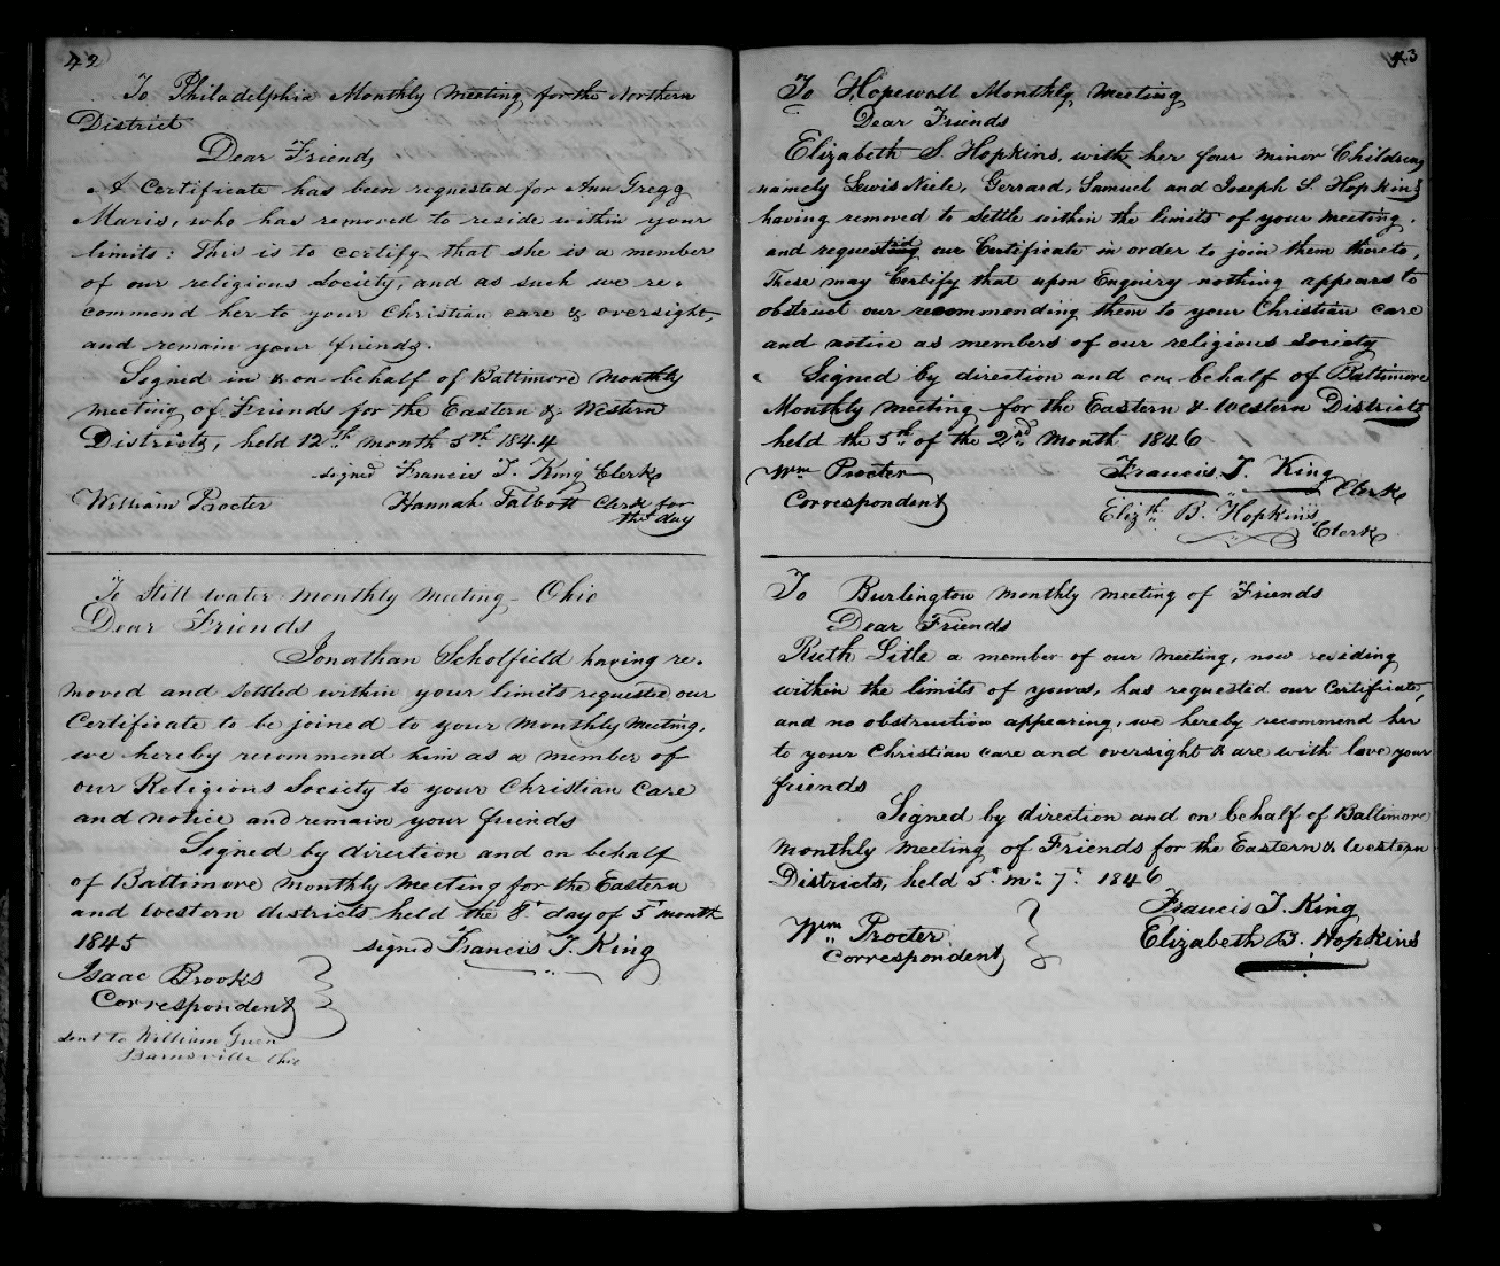 42
To Philadelphia Monthly Meeting for the Northern
District
Dear Friends
A Certificate has been requested for Ann Gregg
Maris, who has removed to reside within your
limits: This is to certify that she is a member
of our religious Society, and as such we re-
commend her to your Christian care & oversight,
and remain your friends.
Signed in & on behalf of Baltimore Monthly
Meeting of Friends for the Eastern & Western
Districts, held 12th month 5th 1844
signed Francis T. King Clerk
William Procter Hannah Talbott Clerk for
the day
To Still water Monthly Meeting Ohio
Dear Friends
Jonathan Scholfield having re-
moved and settled within your limits requests our
Certificate to be joined to your Monthly Meeting,
we hereby recommend him as a member of
our Religious Society to your Christian Care
and notice and remain your friends
Signed by direction and on behalf
of Baltimore Monthly Meeting for the Eastern
and Western districts held the 8th day of 5th month
1845 signed Francis T. King
Isaac Brooks
Correspondent
sent to William Green
Barnsville Ohio
43
To Hopewell Monthly Meeting
Dear Friends
Elizabeth S. Hopkins, with her four minor Children
namely Lewis Neile, Gerrard, Samuel and Joseph S. Hopkins
having removed to settle within the limits of your Meeting.
and requesting our Certificate in order to join them thereto,
These may Certify that upon Enquiry nothing appears to
obstruct our recommending them to your Christian care
and notice as members of our religious Society
Signed by direction and on behalf of Baltimore
Monthly Meeting for the Eastern & Western Districts
held the 5th of the 2nd Month 1846
Wm Procter Francis T. King
Correspondent Clerk
Elizth B. Hopkins
Clerk
To Burlington Monthly Meeting of Friends
Dear Friends
Ruth Litle a member of our Meeting, now residing
within the limits of yours, has requested our Certificate,
and no obstruction appearing, we hereby recommend her
to your Christian care and oversight & are with love your
friends
Signed by direction and on behalf of Baltimore
Monthly Meeting of Friends for the Eastern & Western
Districts, held 5th mo: 7th 1846
Francis T. King
Wm Procter Elizabeth B. Hopkins
Correspondent